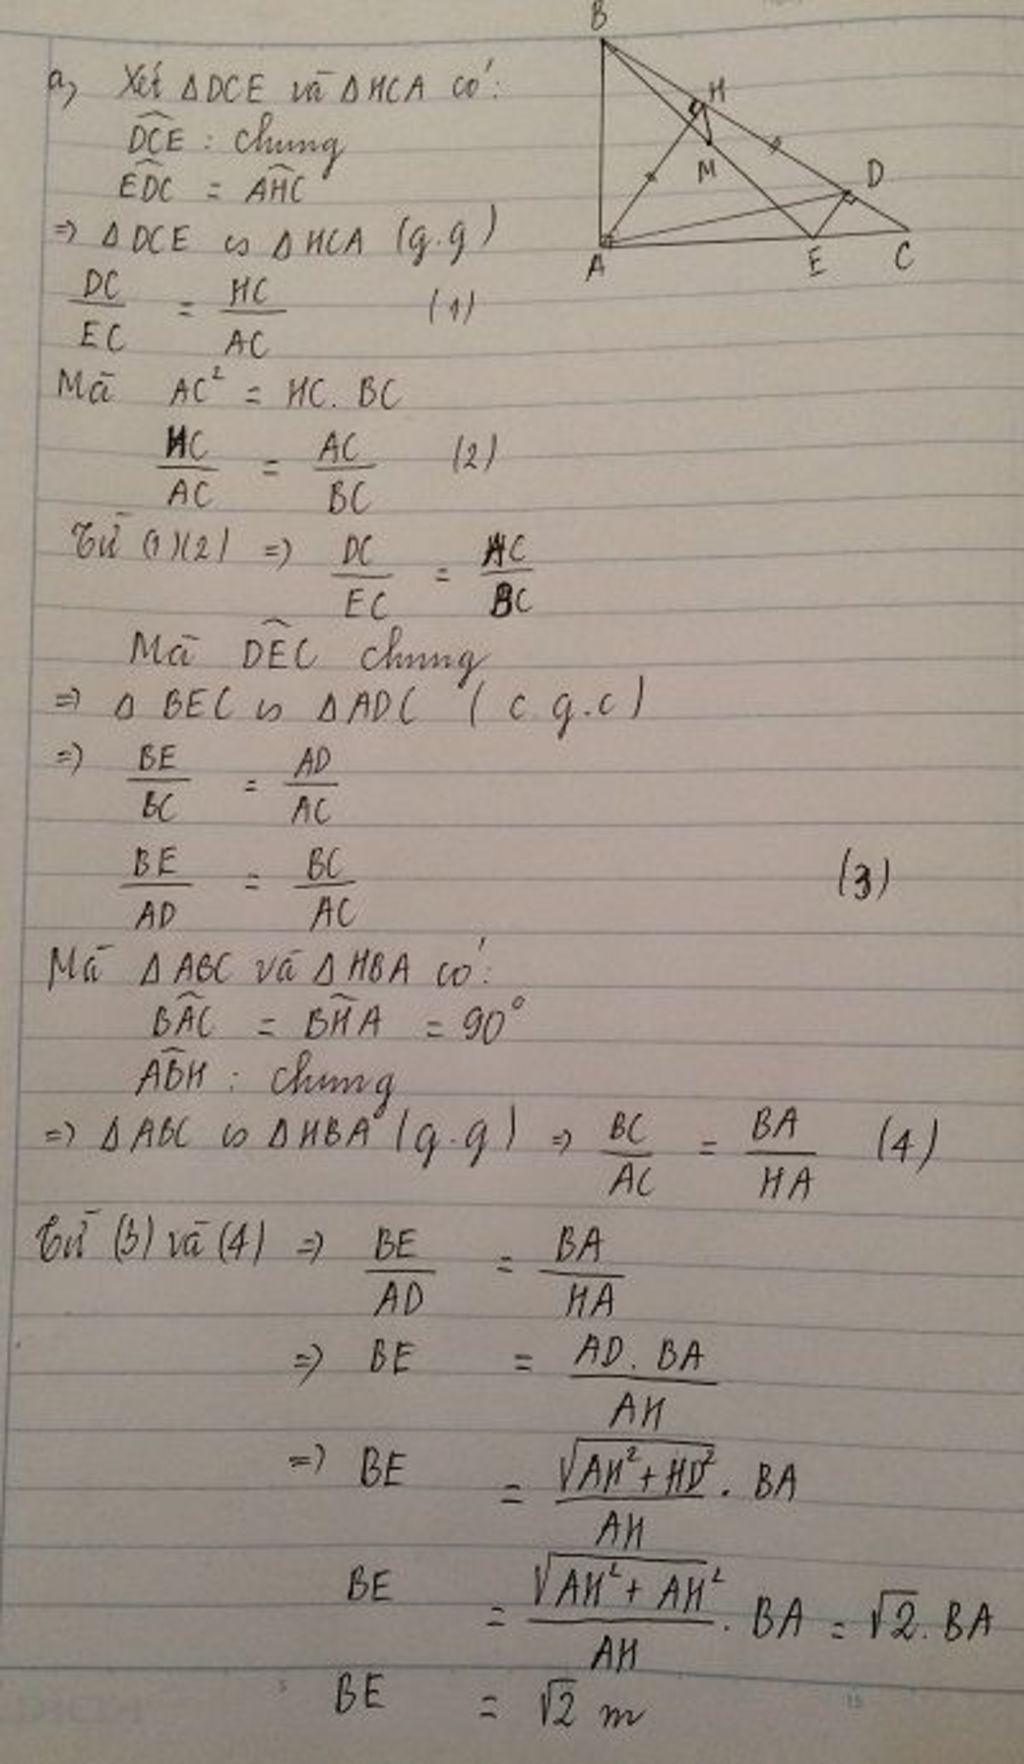 a, Xét ΔDCE và ΔHCA có:
D̂CE : chung
ÊDC = ÂHC
=> ΔDCE ∽ ΔHCA (g.g)
DC/EC = HC/AC (1)
Mà AC² = HC. BC
HC/AC = AC/BC (2)
Từ (1)(2) => DC/EC = AC/BC
Mà D̂EC chung
=> Δ BEC ∽ ΔADC ( c g.c)
=> BE/BC = AD/AC
BE/AD = BC/AC (3)
Mà ΔABC và ΔHBA có:
B̂AC = B̂HA = 90°
ÂBH : chung
=> ΔABC ∽ ΔHBA (g.g) => BC/AC = BA/HA (4)
Từ (3) và (4) => BE/AD = BA/HA
=> BE = AD. BA/AH
=> BE = √(AH² + HD²)/AH . BA
BE = √(AH² + AH²)/AH . BA = √2. BA
BE = √2 m
B
H
M
D
A
E
C